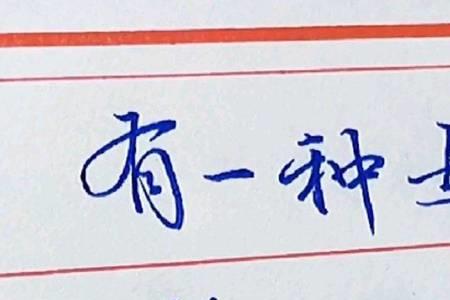 有一种